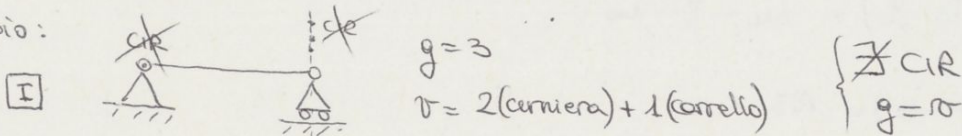 pio:
I
CIR
CIR
g=3
v= 2(cerniera) + 1(carrello)
{ ∄ CIR
g=v